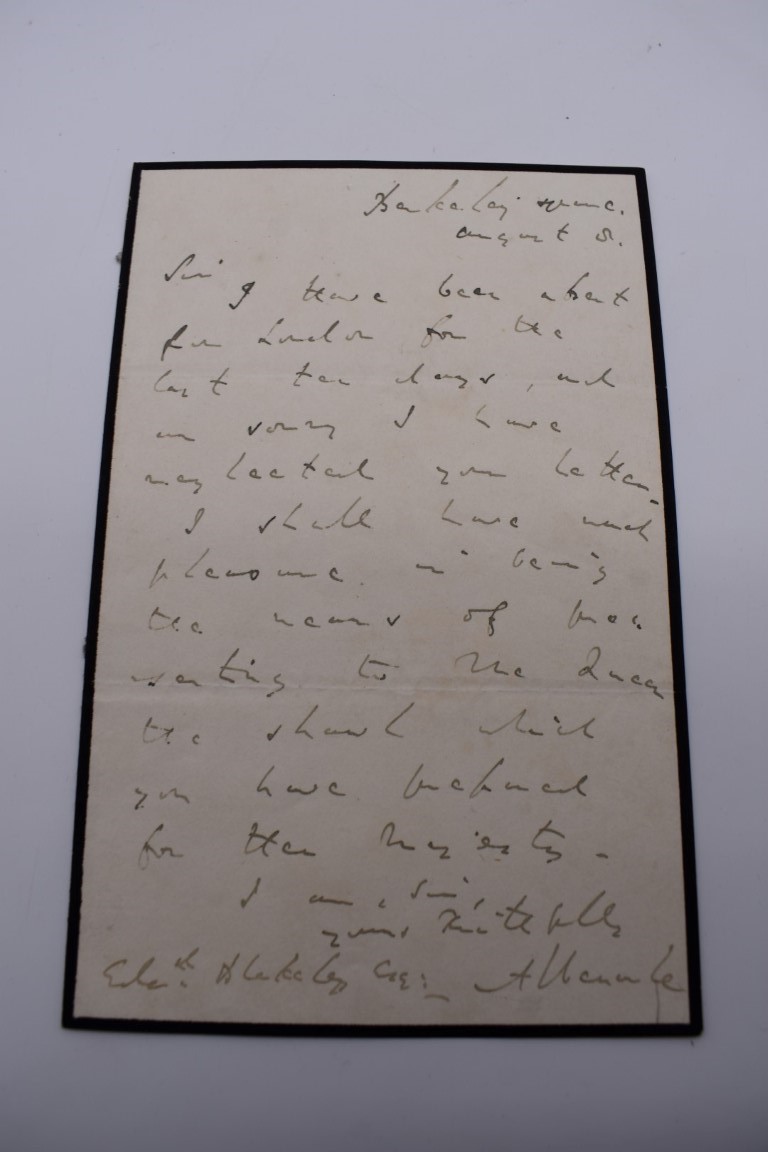 Berkeley Square.
August 8.
Sir
I have been absent
from London for the
last ten days, and
am sorry I have
neglected your letter.
I shall have much
pleasure in being
the means of pre-
senting to The Queen
the shawl which
you have prepared
for Her Majesty -
I am, Sir,
yours faithfully
Albemarle
Edwd. Blakeley Esq: